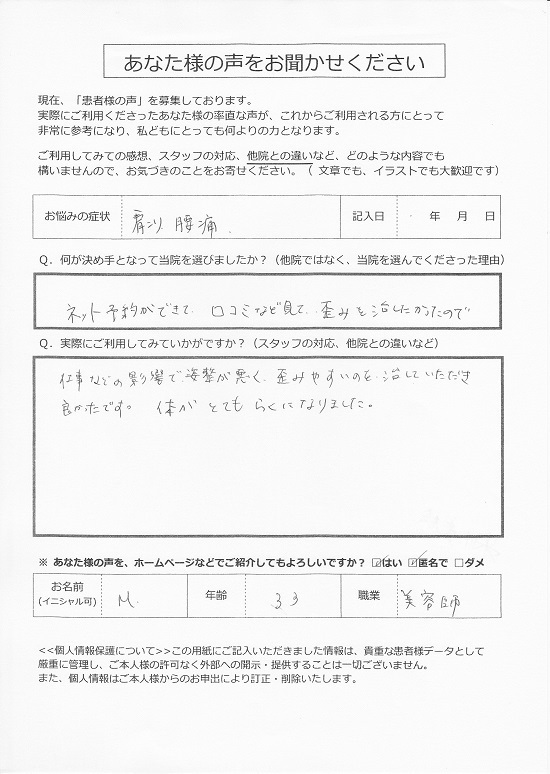 あなた様の声をお聞かせください
現在、「患者様の声」を募集しております。
実際にご利用くださったあなた様の率直な声が、これからご利用される方にとって
非常に参考になり、私どもにとっても何よりの力となります。
ご利用してみての感想、スタッフの対応、他院との違いなど、どのような内容でも
構いませんので、お気づきのことをお寄せください。（ 文章でも、イラストでも大歓迎です）
お悩みの症状 肩こり 腰痛. 記入日 年 月 日
Q．何が決め手となって当院を選びましたか？（他院ではなく、当院を選んでくださった理由）
ネット予約ができて、口コミなど見て、歪みを治したかったので
Q．実際にご利用してみていかがですか？（スタッフの対応、他院との違いなど）
仕事などの影響で姿勢が悪く、歪みやすいのを治していただき
良かったです。 体が とても らくになりました。
※ あなた様の声を、ホームページなどでご紹介してもよろしいですか？ ☑はい ☑匿名で □ダメ
お名前 M. 年齢 33 職業 美容師
(イニシャル可)
<<個人情報保護について>>この用紙にご記入いただきました情報は、貴重な患者様データとして
厳重に管理し、ご本人様の許可なく外部への開示・提供することは一切ございません。
また、個人情報はご本人様からのお申出により訂正・削除いたします。